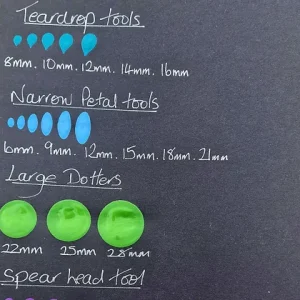 Teardrop tools
8mm. 10mm. 12mm. 14mm. 16mm
Narrow Petal tools
6mm. 9mm. 12mm. 15mm. 18mm. 21mm
Large Dotters
22mm 25mm 28mm
Spear head tool